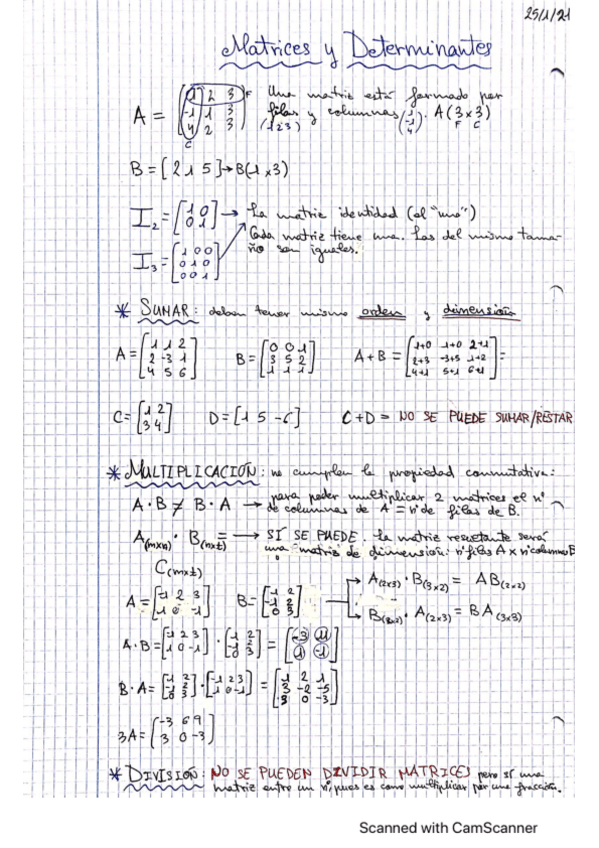 25/1/21
Matrices y Determinantes
A = [1 2 3 F Una matriz está formado por
-1 1 3 filas y columnas (1 -1 4). A(3x3)
4 2 3] (1 2 3) F C
C
B = [2 1 5] → B(1x3)
I₂ = [1 0 → La matriz identidad (el "uno")
0 1] Cada matriz tiene una. Las del mismo tama-
I₃ = [1 0 0 ño son iguales.
0 1 0
0 0 1]
* SUMAR: deben tener mismo orden y dimensión
A = [1 1 2 B = [0 0 1 A + B = [1+0 1+0 2+1
2 -3 1 3 5 2 2+3 -3+5 1+2
4 5 6] 1 1 1] 4+1 5+1 6+1] =
C = [1 2 D = [1 5 -6] C+D = NO SE PUEDE SUMAR/RESTAR
3 4]
* MULTIPLICACIÓN: no cumplen la propiedad conmutativa:
A · B ≠ B · A → para poder multiplicar 2 matrices el nº
de columnas de A = nº de filas de B.
A(mxn) · B(nxt) = → SÍ SE PUEDE. La matriz resultante será
una matriz de dimensión: nº filas A x nº columnas B
C(mxt)
A = [-1 2 3 B = [-1 2 → A(2x3) · B(3x2) = AB(2x2)
1 0 -1] -1 2
0 3] → B(3x2) · A(2x3) = BA(3x3)
A · B = [-1 2 3 · [-1 2 = [-3 11
1 0 -1] -1 2 -1 -1]
0 3]
B · A = [-1 2 · [-1 2 3 = [3 -2 -5
-1 2 1 0 -1] 3 0 -3]
0 3]
3A = [-3 6 9
3 0 -3]
* DIVISIÓN: NO SE PUEDEN DIVIDIR MATRICES pero sí una
matriz entre un nº, pues es como multiplicar por una fracción.
Scanned with CamScanner